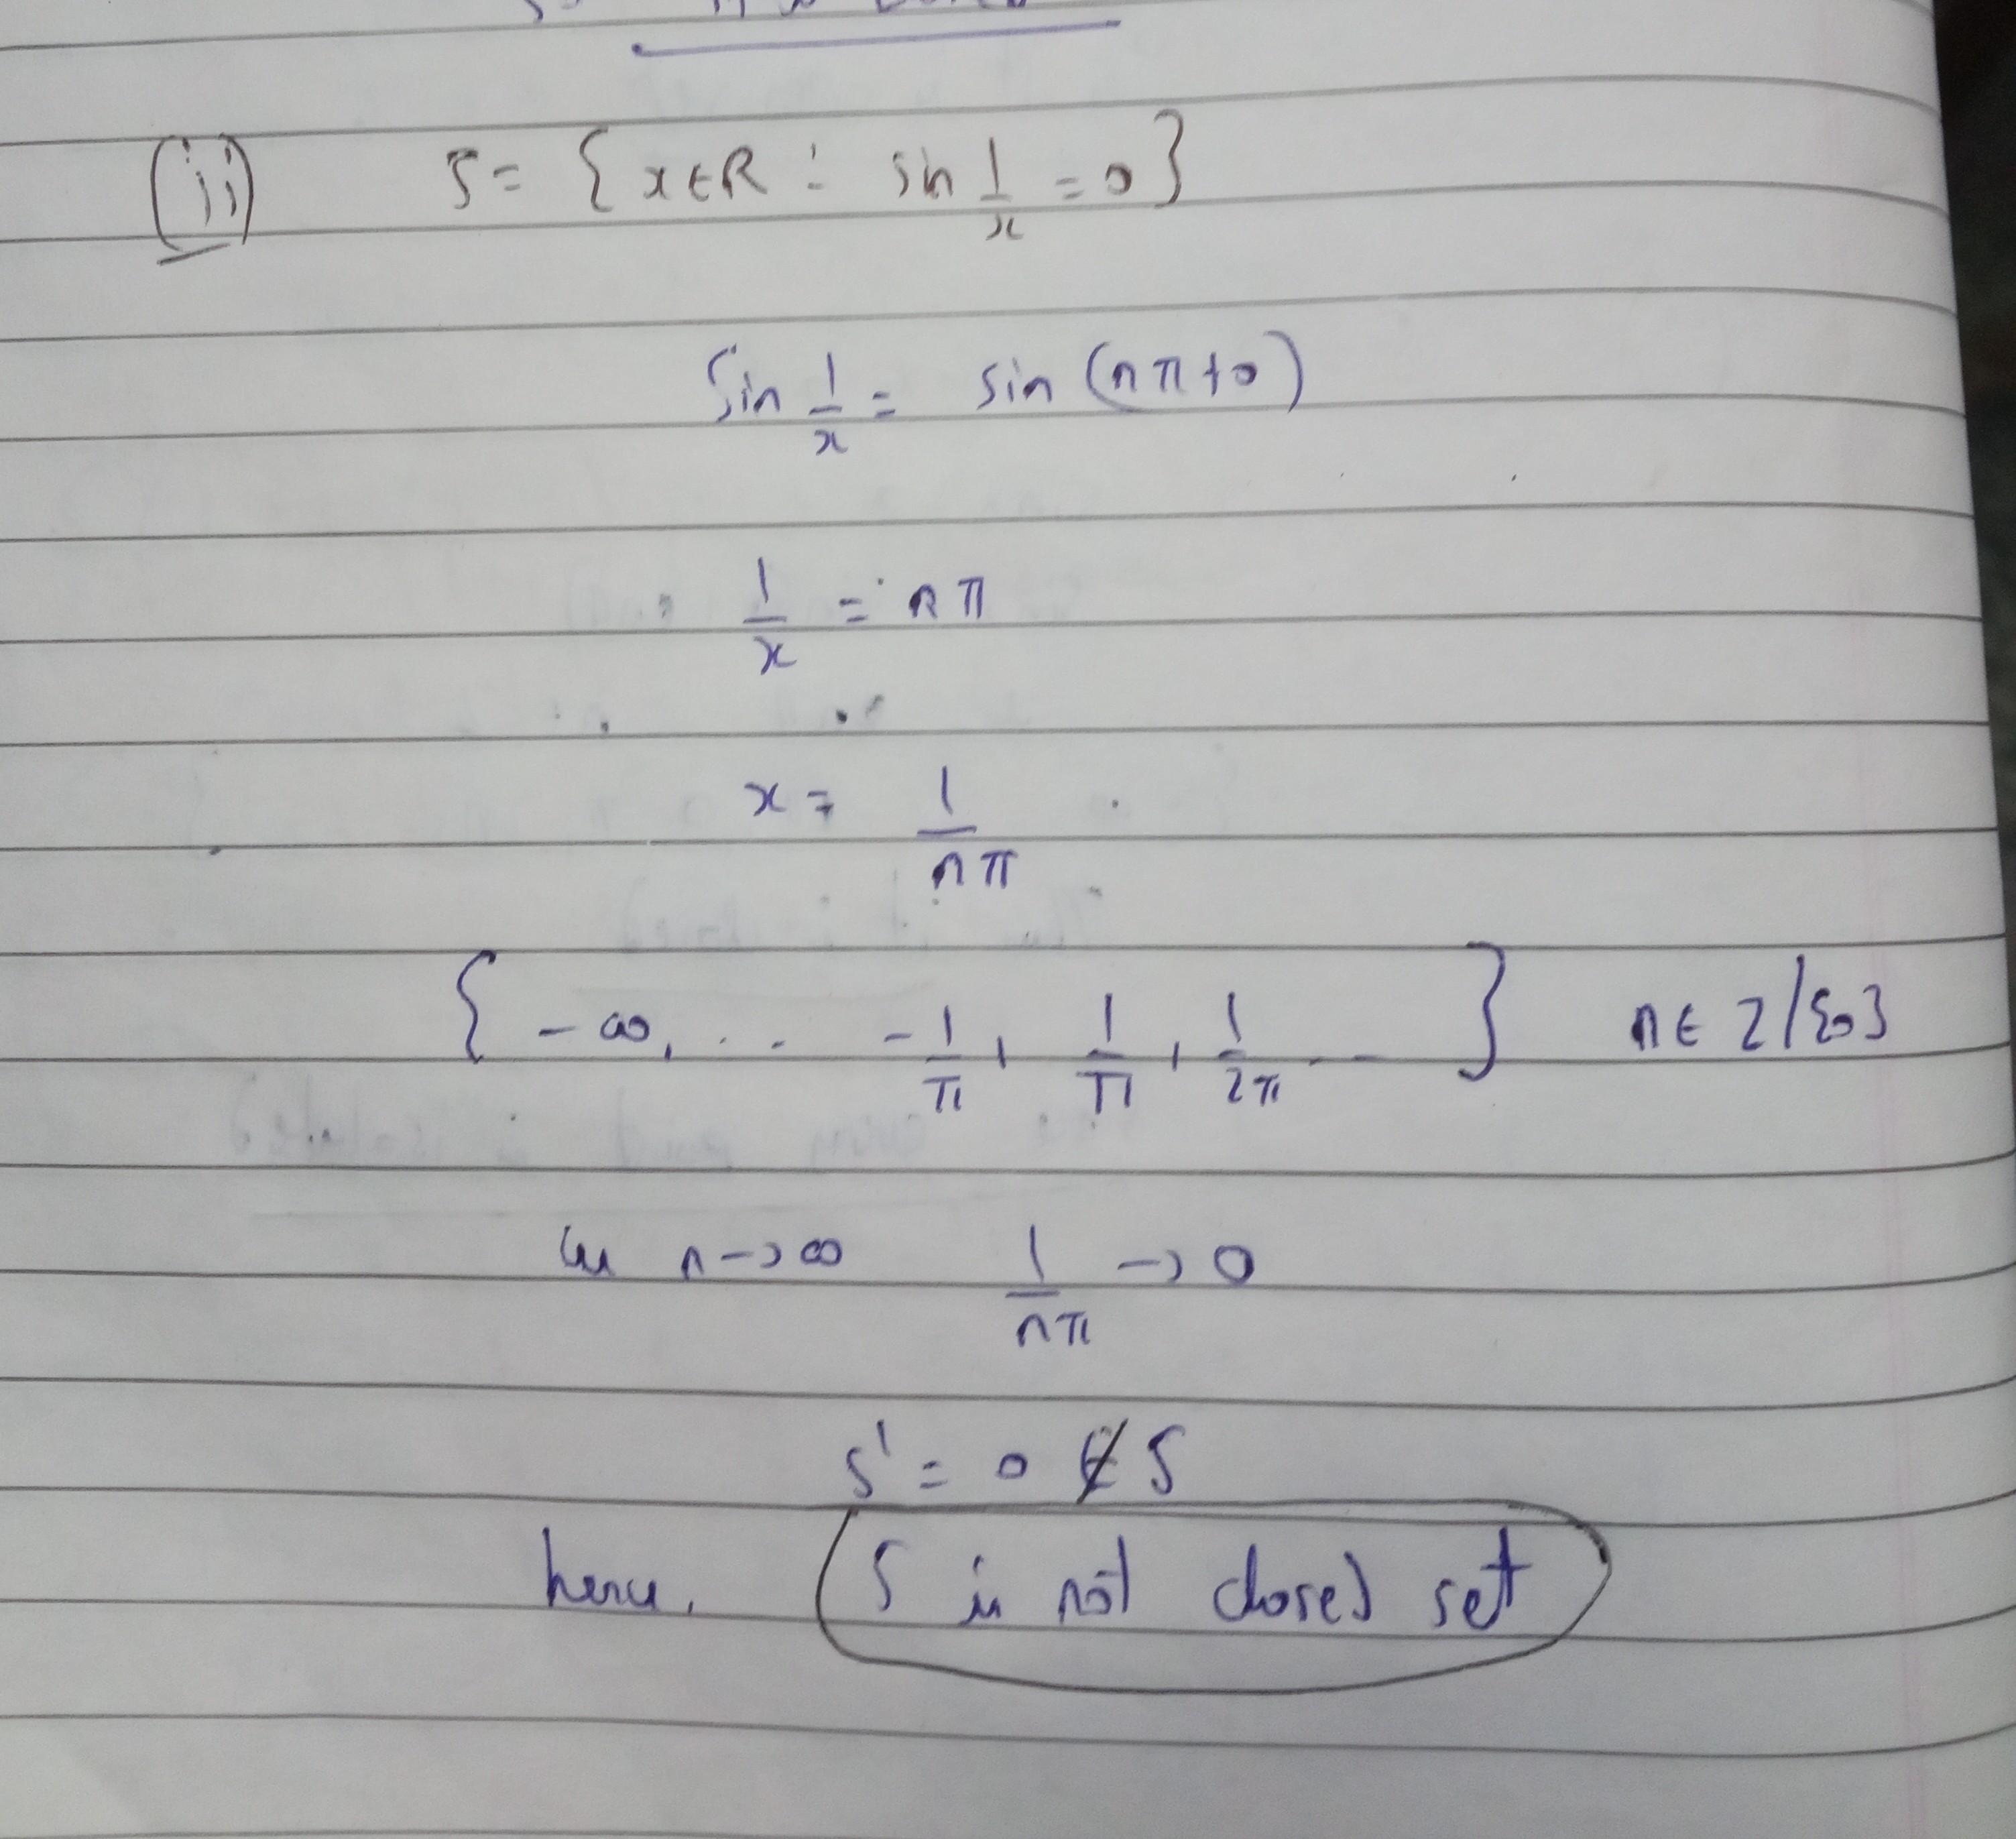 (ii) S = { x ∈ R : sin 1/x = 0 }
Sin 1/x = sin (nπ + 0)
1/x = nπ
x = 1/nπ
{ -∞, .. -1/π, 1/π, 1/2π -- } n ∈ Z/{0}
as n → ∞ 1/nπ → 0
S' = 0 ∉ S
hence, S is not closed set